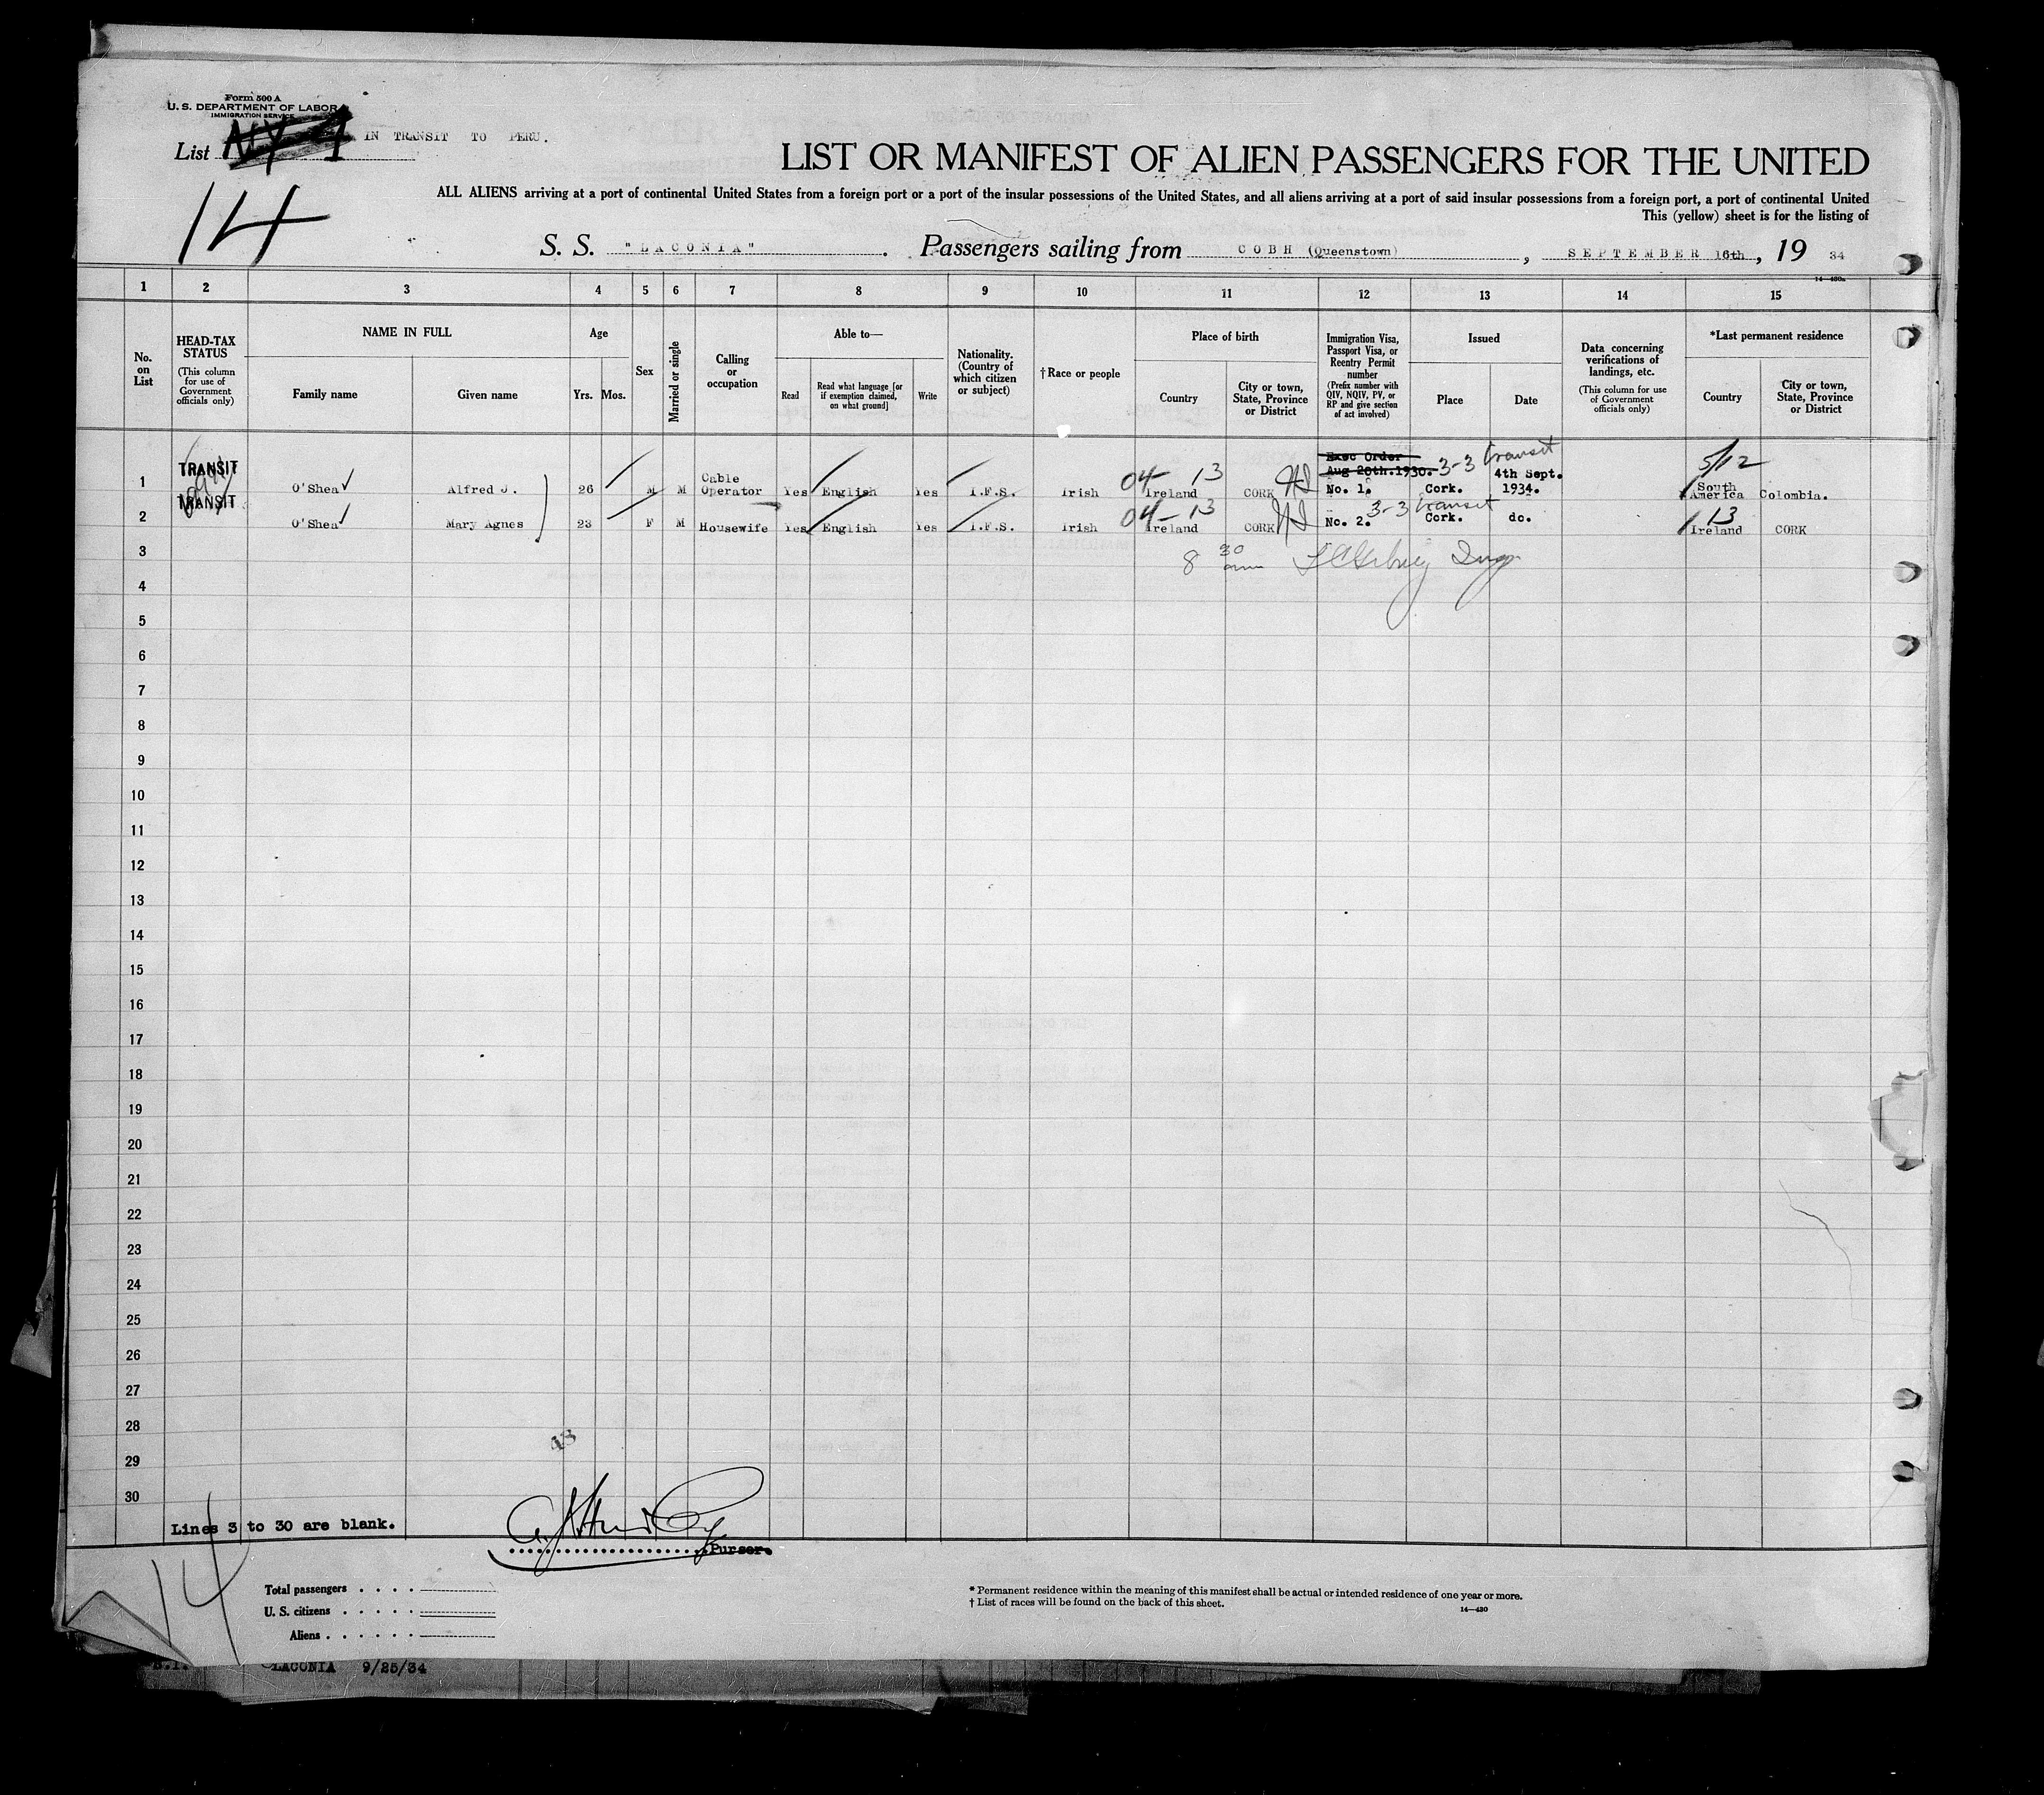 Form 500 A
U. S. DEPARTMENT OF LABOR
IMMIGRATION SERVICE
List IN TRANSIT TO PERU.
14
LIST OR MANIFEST OF ALIEN PASSENGERS FOR THE UNITED
ALL ALIENS arriving at a port of continental United States from a foreign port or a port of the insular possessions of the United States, and all aliens arriving at a port of said insular possessions from a foreign port, a port of continental United
This (yellow) sheet is for the listing of
S. S. "LACONIA". Passengers sailing from COBH (Queenstown), SEPTEMBER 16th, 19 34
14—430a
1 2 3 4 5 6 7 8 9 10 11 12 13 14 15
No. on List
HEAD-TAX STATUS (This column for use of Government officials only)
NAME IN FULL
Family name
Given name
Age
Yrs. Mos.
Sex
Married or single
Calling or occupation
Able to—
Read
Read what language [or if exemption claimed, on what ground]
Write
Nationality. (Country of which citizen or subject)
†Race or people
Place of birth
Country
City or town, State, Province or District
Immigration Visa, Passport Visa, or Reentry Permit number (Prefix number with QIV, NQIV, PV, or RP and give section of act involved)
Issued
Place
Date
Data concerning verifications of landings, etc. (This column for use of Government officials only)
*Last permanent residence
Country
City or town, State, Province or District
Exec Order Aug 20th.1930. 3-3 transit
1 TRANSIT O'Shea Alfred J. 26 M M Cable Operator Yes English Yes I.F.S. Irish 04- 13 Ireland CORK No. 1. Cork. 4th Sept. 1934. 5/12 South America Colombia.
2 TRANSIT O'Shea Mary Agnes 23 F M Housewife Yes English Yes I.F.S. Irish 04- 13 Ireland CORK No. 2. 3-3 transit Cork. do. 13 Ireland CORK
3 8 30
4
5
6
7
8
9
10
11
12
13
14
15
16
17
18
19
20
21
22
23
24
25
26
27
28
29
30
48
Lines 3 to 30 are blank.
Purser.
14
Total passengers
U. S. citizens
Aliens
* Permanent residence within the meaning of this manifest shall be actual or intended residence of one year or more.
† List of races will be found on the back of this sheet.
14—430
LACONIA 9/25/34